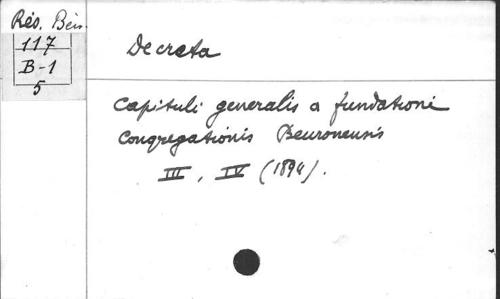 Rés. Bén.
117
B-1
5
Decreta
Capituli generalis a fundatione
Congregationis Beuronensis
III, IV (1894).